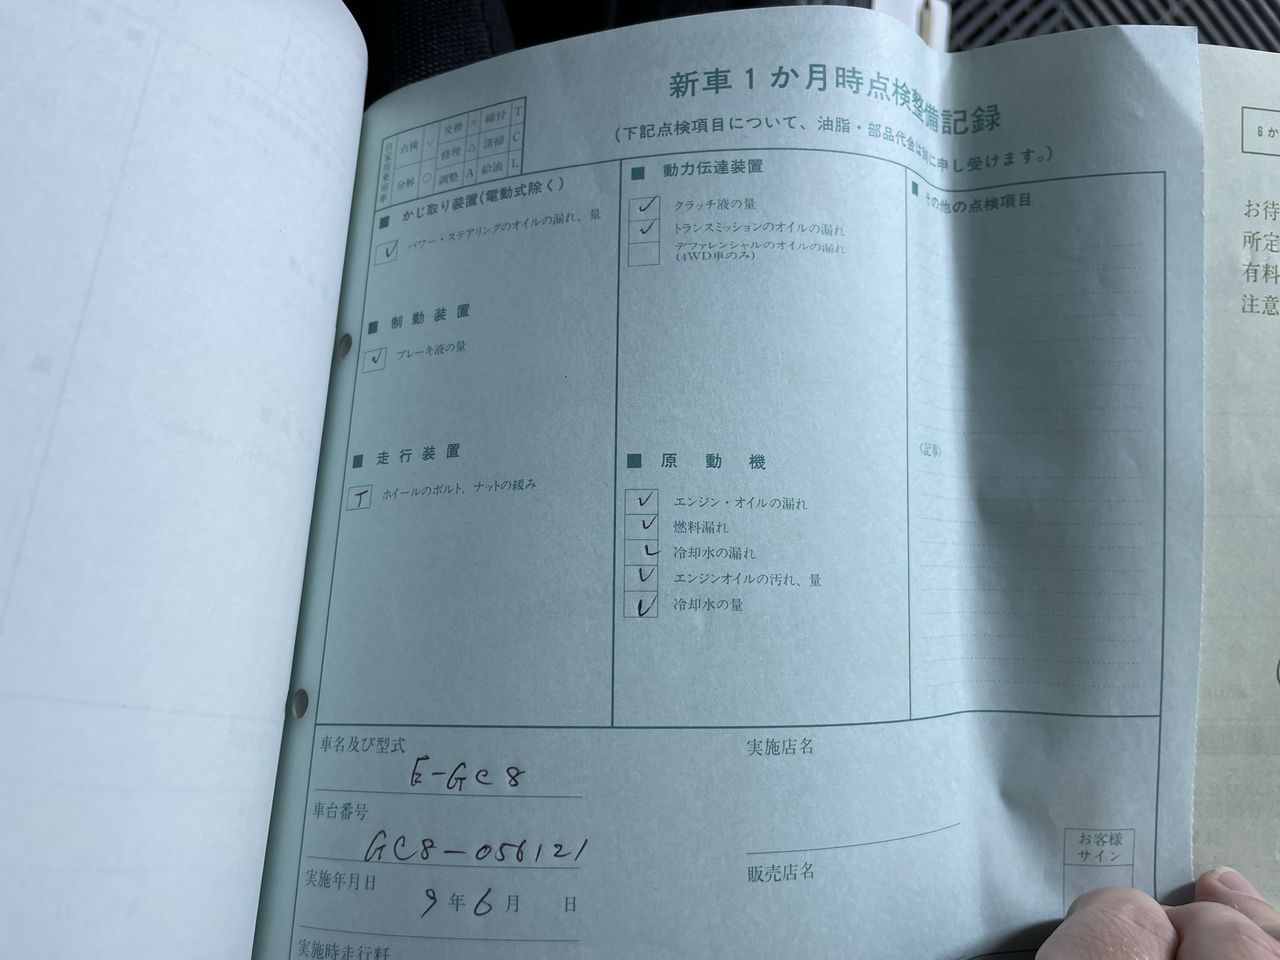 新車1か月時点検整備記録
(下記点検項目について、油脂・部品代金は別に申し受けます。)
自家用乗用車
点検 ✓ 交換 × 締付 T
修理 △ 清掃 C
分解 ○ 調整 A 給油 L
■ かじ取り装置(電動式除く)
✓ パワー・ステアリングのオイルの漏れ、量
■ 制動装置
✓ ブレーキ液の量
■ 走行装置
T ホイールのボルト、ナットの緩み
■ 動力伝達装置
✓ クラッチ液の量
✓ トランスミッションのオイルの漏れ
デファレンシャルのオイルの漏れ
(4WD車のみ)
■ 原動機
✓ エンジン・オイルの漏れ
✓ 燃料漏れ
✓ 冷却水の漏れ
✓ エンジンオイルの汚れ、量
✓ 冷却水の量
■ その他の点検項目
〈記事〉
車名及び型式
E-GC8
車台番号
GC8-056121
実施年月日
9年6月 日
実施時走行
実施店名
販売店名
お客様
サイン
6か
お待
所定
有料
注意